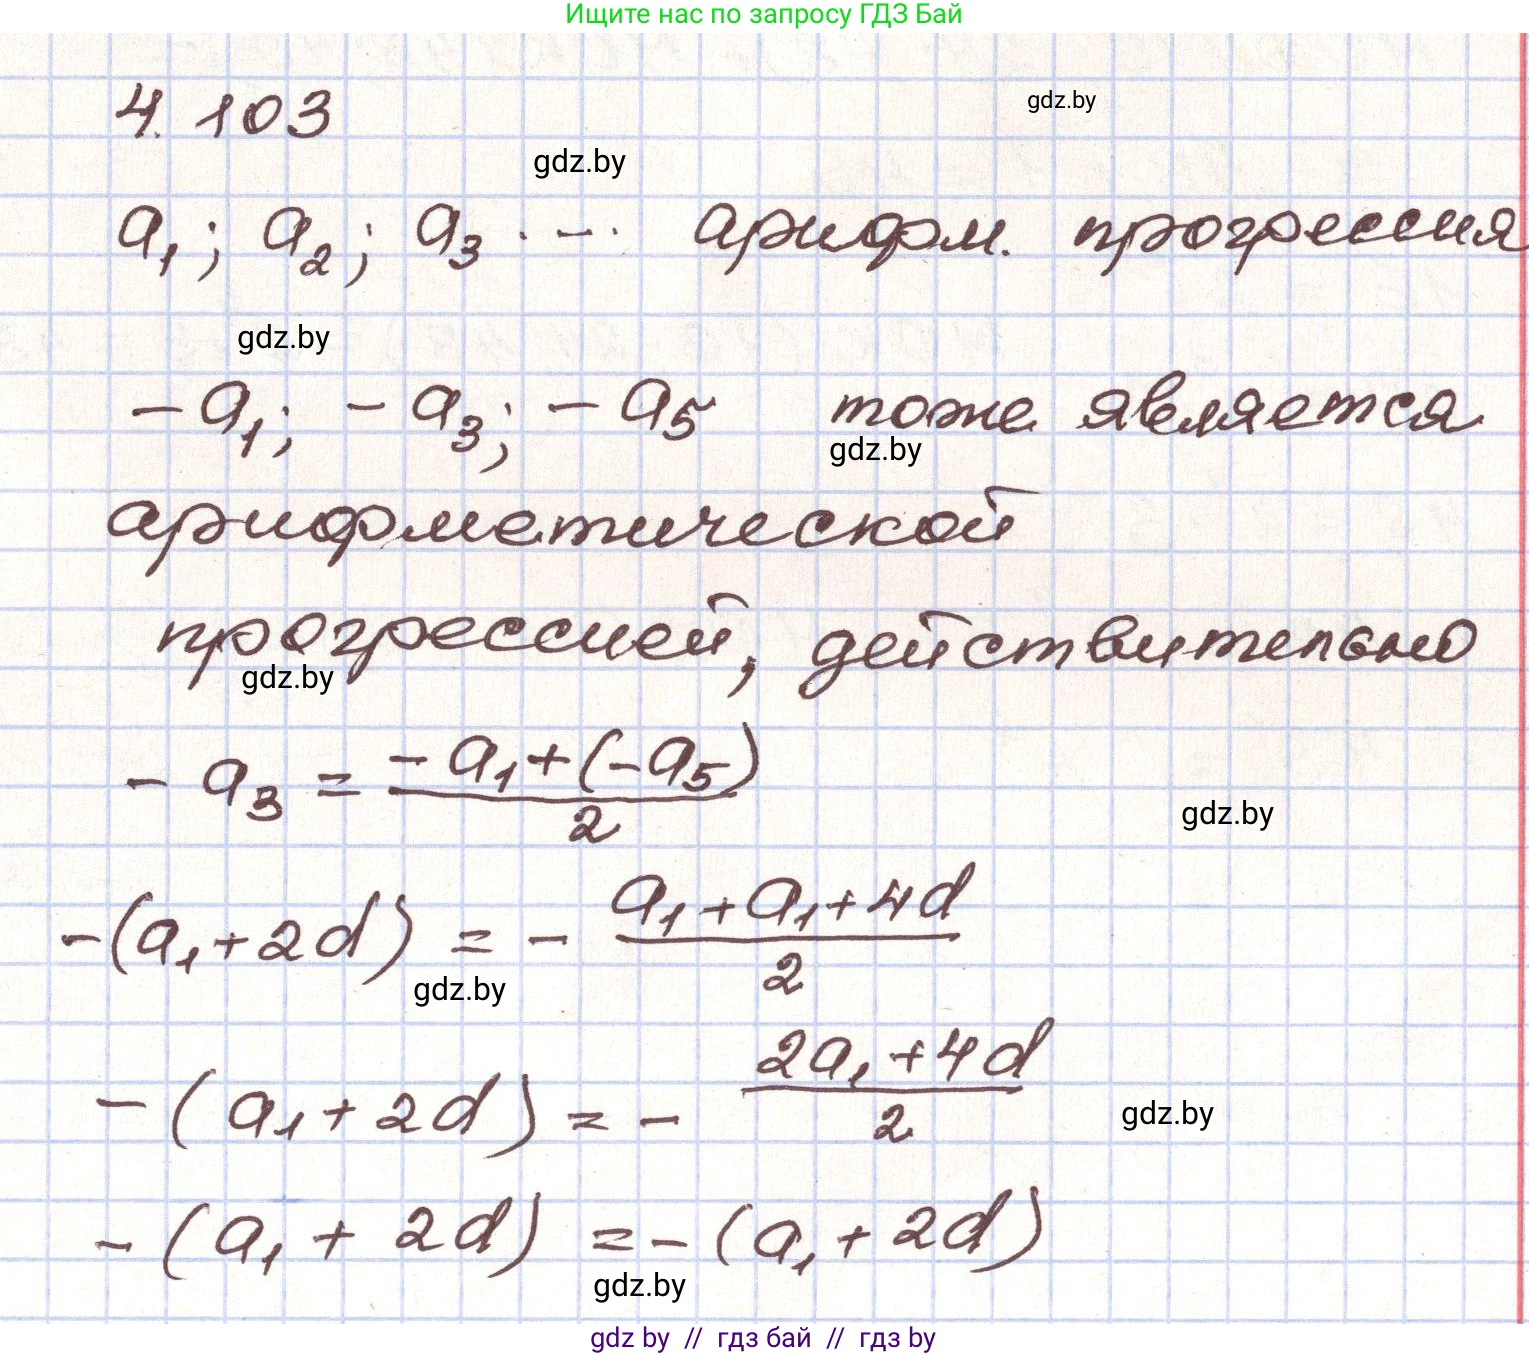 Ищите нас по запросу ГДЗ Бай
4.103
gdz.by
gdz.by
a₁; a₂; a₃ ... арифм. прогрессия
gdz.by
-a₁; -a₃; -a₅ тоже является
gdz.by
арифметической
прогрессией, действительно
gdz.by
-a₃ = (-a₁+(-a₅))/2
gdz.by
-(a₁+2d) = - (a₁+a₁+4d)/2
gdz.by
-(a₁+2d) = - (2a₁+4d)/2
gdz.by
-(a₁+2d) = -(a₁+2d)
gdz.by
gdz by // гдз бай // гдз by